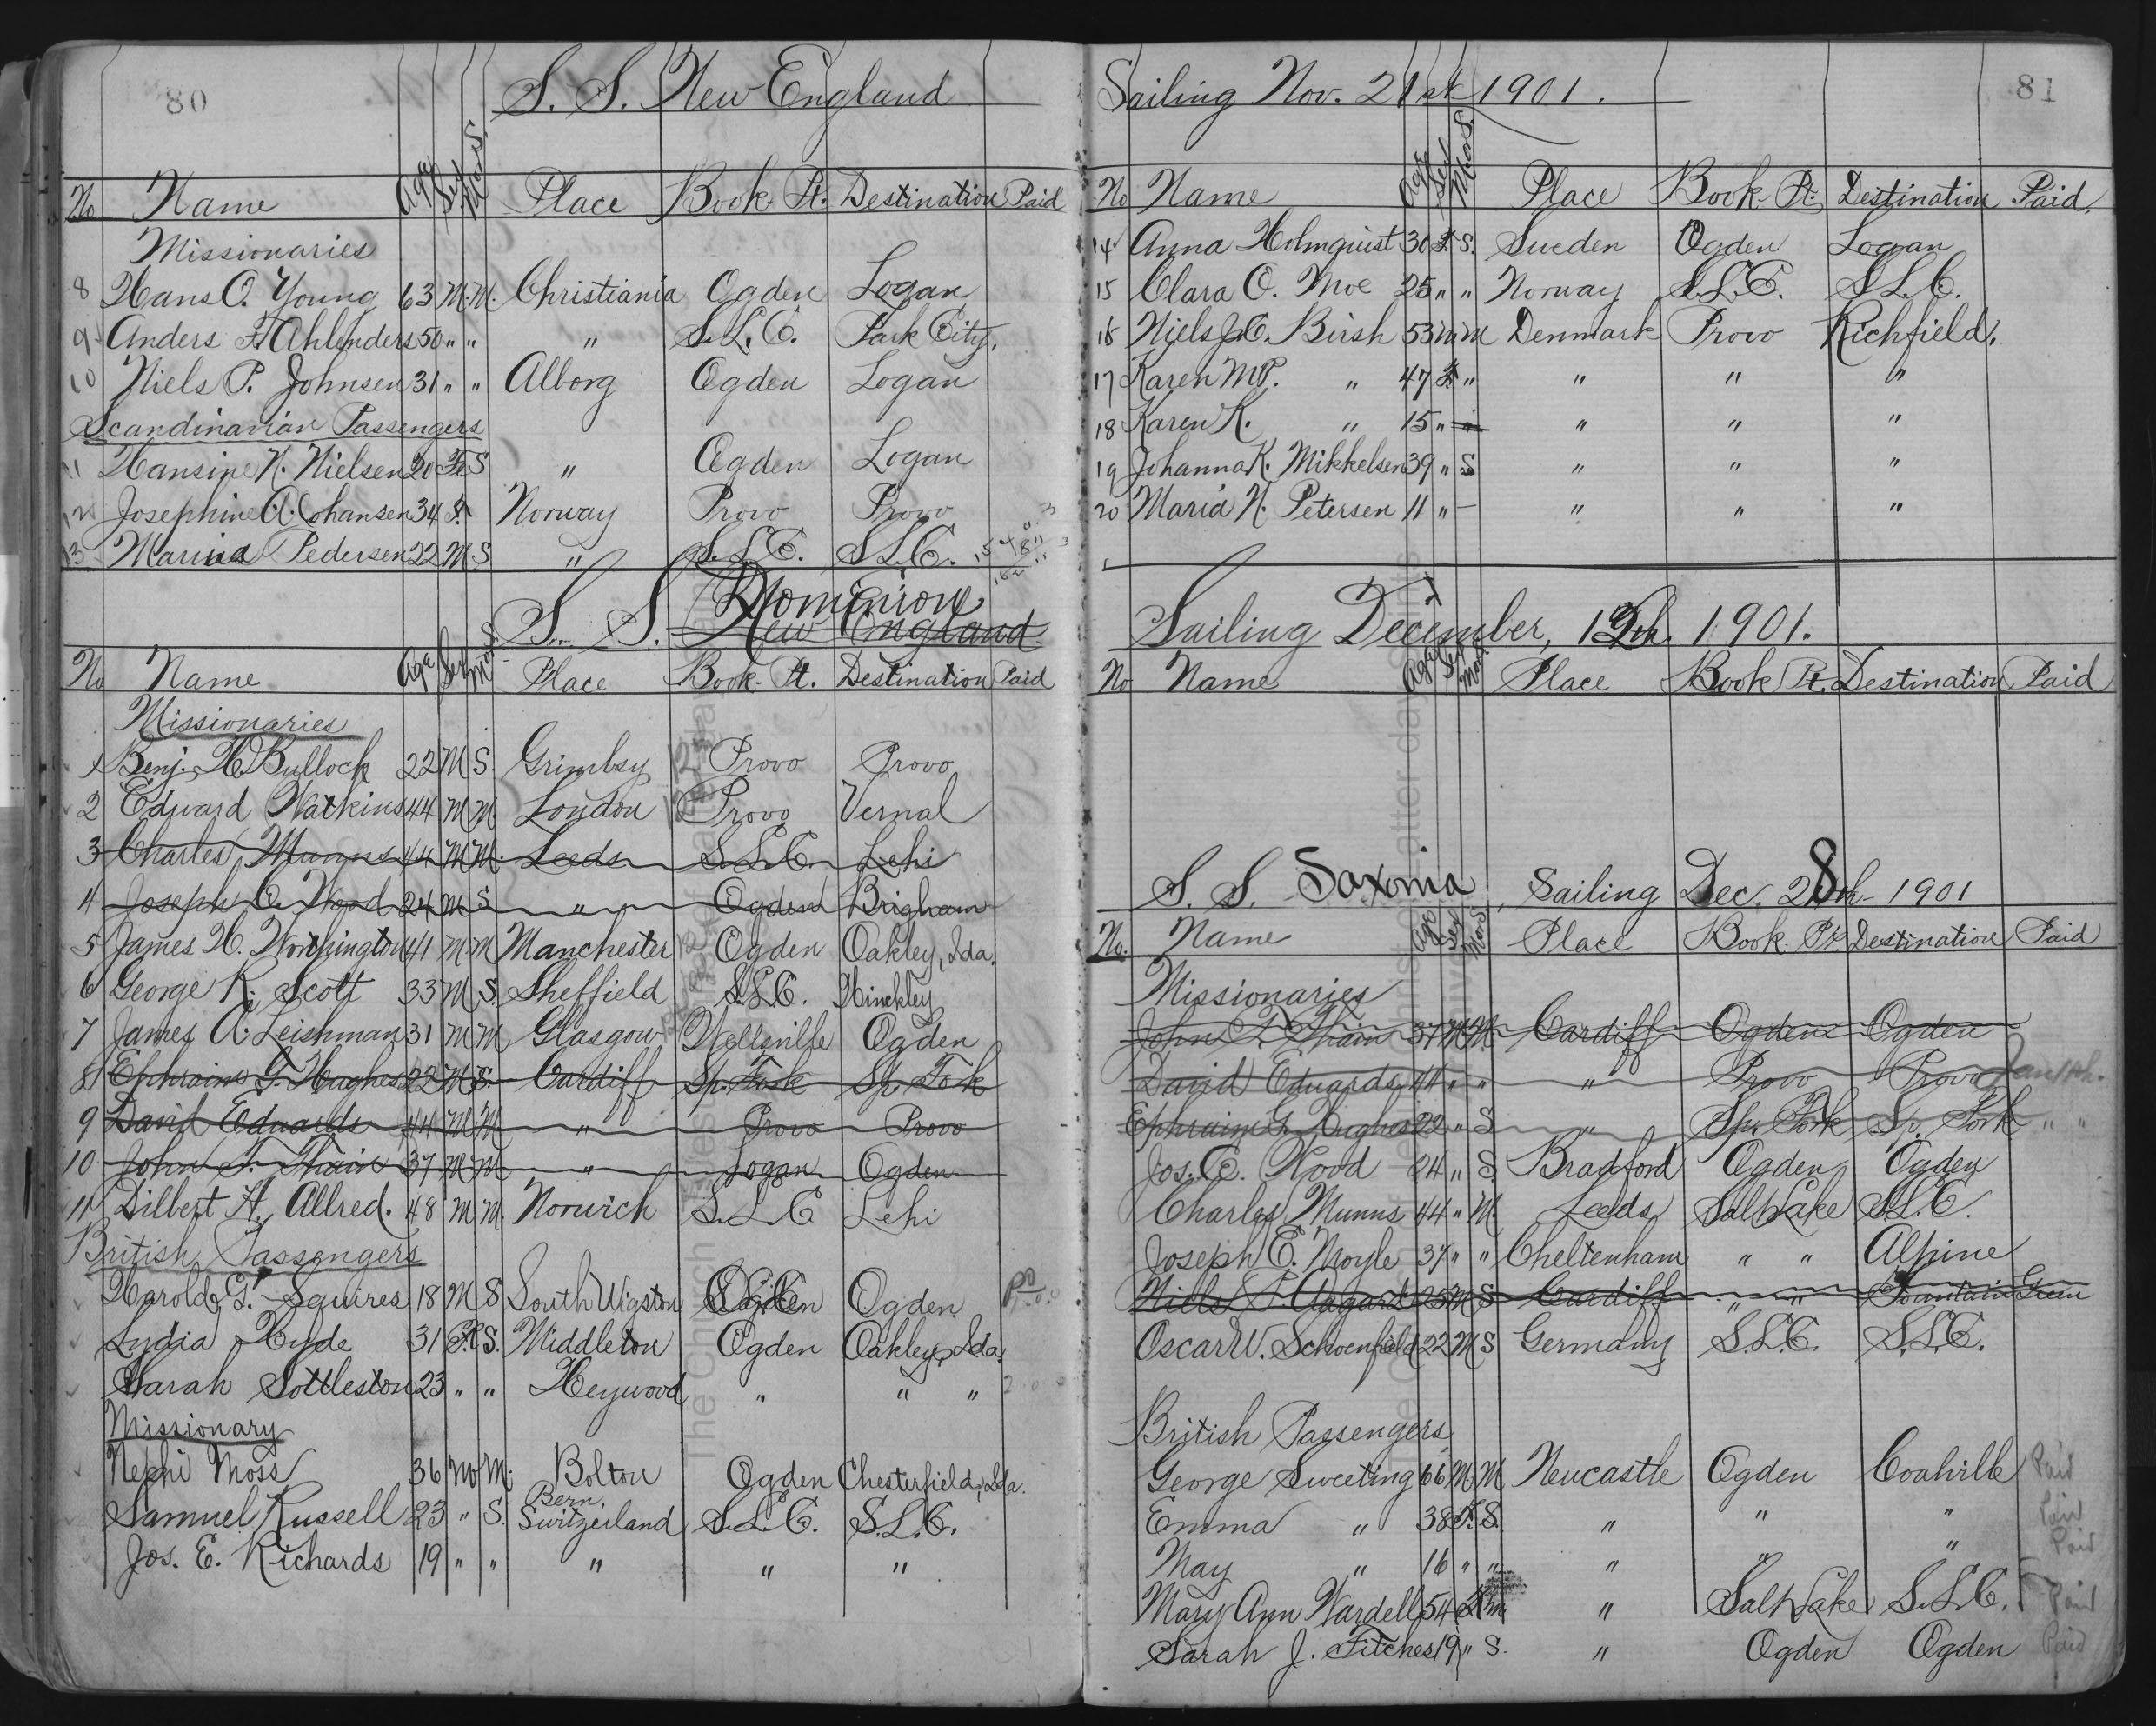 80
S. S. New England
No Name Age Sex M or S. Place Book. Pt. Destination Paid
Missionaries
8 Hans O. Young 63 M. M. Christiania Ogden Logan
9 Anders F. Ahlenders 50 " " " S.L.C. Park City.
10 Niels P. Johnsen 31 " " Alborg Ogden Logan
Scandinavian Passengers
11 Hansine N. Nielsen 20 Fe S " Ogden Logan
12 Josephine A. Johansen 34 S. Norway Provo Provo
13 Marius Pedersen 22 M. S " S.L.C. S.L.C.
S. S. New England Dominion
No Name Age Sex M or S Place Book. Pt. Destination Paid
Missionaries
1 Benj. H. Bullock 22 M S. Grimbsy Provo Provo
2 Edward Watkins 44 M M. London Provo Vernal
3 Charles Munns 44 M M. Leeds S.L.C. Lehi
4 Joseph C. Wood 24 M S " Ogden Brigham
5 James H. Worthington 41 M. M Manchester Ogden Oakley, Ida.
6 George R. Scott 33 M S. Sheffield S.L.C. Hinckley
7 James A. Leishman 31 M M Glasgow Wellsville Ogden
8 Ephraim G. Hughes 22 M S. Cardiff Sp. Fork Sp. Fork
9 David Edwards 44 M M " Provo Provo
10 John T. Thain 37 M M " Logan Ogden
11 Dilbert H. Allred. 48 M M. Norwich S.L.C Lehi
British Passengers
Harold G. Squires 18 M S South Wigston Ogden Ogden
Lydia Hyde 31 Fe S. Middleton Ogden Oakley, Ida.
Sarah Sottleston 23 " " Heywood " " "
Missionary
Nephi Moss 36 M M. Bolton Ogden Chesterfield, Ida.
Samuel Russell 23 " S. Bern, Switzerland S.L.C. S.L.C.
Jos. E. Richards 19 " " " " "
81
Sailing Nov. 21st 1901.
No Name Age Sex M or S. Place Book. Pt. Destination Paid.
14 Anna Holmquist 30 F. S. Sueden Ogden Logan
15 Clara O. Moe 25 " " Norway S.L.C. S.L.C.
16 Niels J.C. Birsh 53 M M Denmark Provo Richfield.
17 Karen M.P. " 47 F. " " " "
18 Karen K. " 15 " " " " "
19 Johanna K. Mikkelsen 39 " S " " "
20 Maria N. Petersen 11 " - " " "
Sailing December, 12th. 1901.
No Name Age Sex M or S Place Book Pt. Destination Paid
S. S. Saxonia, Sailing Dec. 28th - 1901
No. Name Age Sex M or S. Place Book Pt. Destination Paid
Missionaries
John T. Thain 37 M M. Cardiff Ogden Ogden
David Edwards 44 " " " Provo Provo
Ephraim G. Hughes 22 " S " Sp. Fork Sp. Fork " "
Jos. C. Wood 24 " S Bradford Ogden Ogden
Charles Munns 44 " M. Leeds Salt Lake S.L.C.
Joseph E. Moyle 37 " " Cheltenham " " Alpine
Niels P. Aagard 25 M S Cardiff " " Fountain Green
Oscar W. Schoenfeld 22 M S Germany S.L.C. S.L.C.
British Passengers
George Sweeting 66 M. M Newcastle Ogden Coalville Paid
Emma " 38 F. S. " " " Paid
May " 16 " " " " " Paid
Mary Ann Wardell 54 F. m " Salt Lake S.L.C. Paid
Sarah J. Fitches 19 " S. " Ogden Ogden Paid